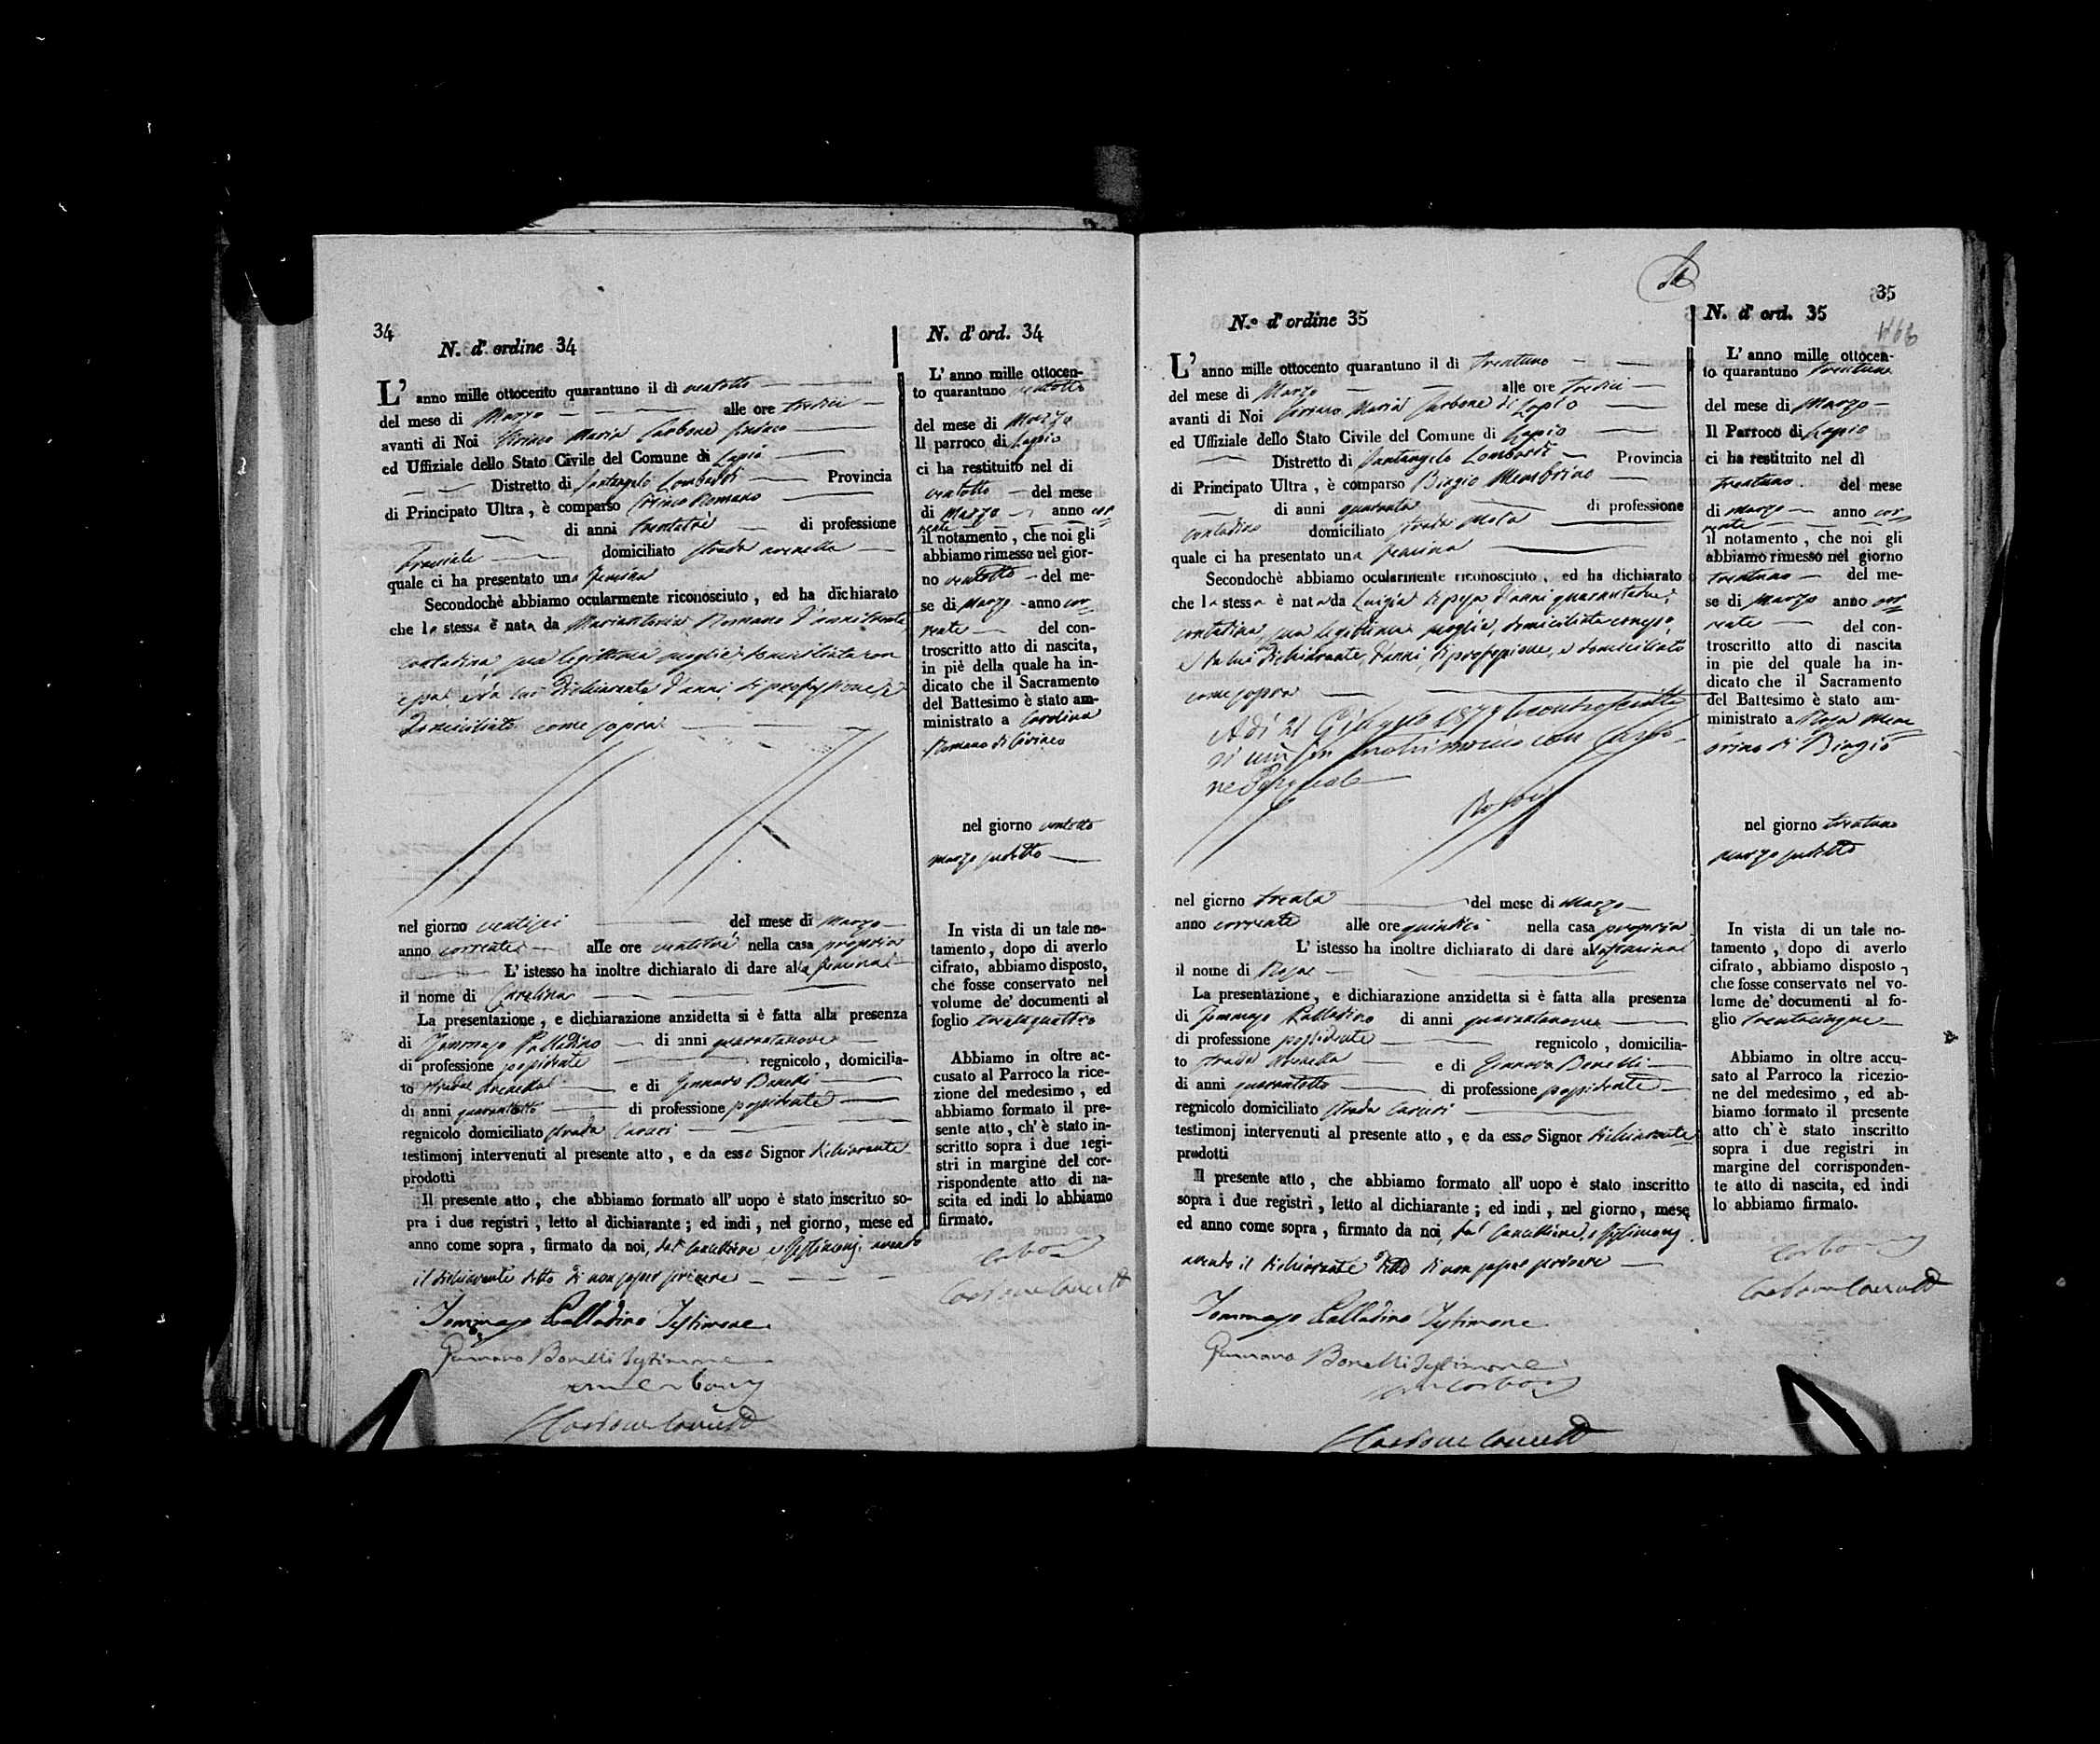 34
N. d' ordine 34
L' anno mille ottocento quarantuno il di ventotto
del mese di Marzo alle ore tredici
avanti di Noi Ciriaco Maria Carbone Sindaco
ed Uffiziale dello Stato Civile del Comune di Lapio
Distretto di Santangelo Lombardi Provincia
di Principato Ultra, è comparso Ciriaco Romano
di anni trentatrè di professione
domiciliato strada
quale ci ha presentato una femina
Secondochè abbiamo ocularmente riconosciuto, ed ha dichiarato
che la stessa è nata da Romano d'anni trenta
contadina sua legittima moglie, domiciliata con
e da lui dichiarante d'anni di professione, e
domiciliato come sopra
nel giorno ventisei del mese di Marzo
anno corrente alle ore ventitrè nella casa propria
L' istesso ha inoltre dichiarato di dare alla femina
il nome di Carolina
La presentazione, e dichiarazione anzidetta si è fatta alla presenza
di Tommaso Palladino di anni quarantanove
di professione possidente regnicolo, domicilia-
to strada e di Gennaro Bonelli
di anni quarantotto di professione possidente
regnicolo domiciliato strada
testimonj intervenuti al presente atto, e da esso Signor dichiarante
prodotti
Il presente atto, che abbiamo formato all' uopo è stato inscritto so-
pra i due registri, letto al dichiarante; ed indi, nel giorno, mese ed
anno come sopra, firmato da noi, dal Cancelliere e testimonj, avendo
il dichiarante detto di non saper scrivere
Tommaso Palladino Testimone
Gennaro Bonelli Testimone
N. d' ord. 34
L' anno mille ottocen-
to quarantuno ventotto
del mese di Marzo
Il parroco di Lapio
ci ha restituito nel di
ventotto del mese
di Marzo anno cor-
rente
il notamento, che noi gli
abbiamo rimesso nel gior-
no ventotto del me-
se di Marzo anno cor-
rente del con-
troscritto atto di nascita,
in piè della quale ha in-
dicato che il Sacramento
del Battesimo è stato am-
ministrato a Carolina
Romano di Ciriaco
nel giorno ventotto
marzo sudetto
In vista di un tale no-
tamento, dopo di averlo
cifrato, abbiamo disposto,
che fosse conservato nel
volume de' documenti al
foglio trentaquattro
Abbiamo in oltre ac-
cusato al Parroco la rice-
zione del medesimo, ed
abbiamo formato il pre-
sente atto, ch' è stato in-
scritto sopra i due regi-
stri in margine del cor-
rispondente atto di na-
scita ed indi lo abbiamo
firmato.
35
N.º d' ordine 35
L' anno mille ottocento quarantuno il di trentuno
del mese di Marzo alle ore tredici
avanti di Noi Ciriaco Maria Carbone di Lapio
ed Uffiziale dello Stato Civile del Comune di Lapio
Distretto di Santangelo Lombardi Provincia
di Principato Ultra, è comparso Biagio Membrino
di anni quaranta di professione
contadino domiciliato strada
quale ci ha presentato una femina
Secondochè abbiamo ocularmente riconosciuto, ed ha dichiarato
che la stessa è nata da Luigia d'anni
contadina, sua legittima moglie, domiciliata
e da lui dichiarante, d'anni di professione, e domiciliato
come sopra
A di 21 1877
si unì in matrimonio con Carbo-
ne Pasquale
nel giorno trenta del mese di Marzo
anno corrente alle ore quindici nella casa propria
L' istesso ha inoltre dichiarato di dare alla femina
il nome di Rosa
La presentazione, e dichiarazione anzidetta si è fatta alla presenza
di Tommaso Palladino di anni quarantanove
di professione possidente regnicolo, domicilia-
to strada e di Gennaro Bonelli
di anni quarantotto di professione possidente
regnicolo domiciliato strada
testimonj intervenuti al presente atto, e da esso Signor dichiarante
prodotti
Il presente atto, che abbiamo formato all' uopo è stato inscritto
sopra i due registri, letto al dichiarante; ed indi, nel giorno, mese
ed anno come sopra, firmato da noi, dal Cancelliere, e testimonj
avendo il dichiarante detto di non saper scrivere
Tommaso Palladino Testimone
Gennaro Bonelli Testimone
N. d' ord. 35
L' anno mille ottocen-
to quarantuno trentuno
del mese di Marzo
Il Parroco di Lapio
ci ha restituito nel dì
trentuno del mese
di Marzo anno cor-
rente
il notamento, che noi gli
abbiamo rimesso nel giorno
trentuno del me-
se di Marzo anno cor-
rente del con-
troscritto atto di nascita
in pie del quale ha in-
dicato che il Sacramento
del Battesimo è stato am-
ministrato a Rosa Mem
brino di Biagio
nel giorno trentuno
marzo sudetto
In vista di un tale no-
tamento, dopo di averlo
cifrato, abbiamo disposto,
che fosse conservato nel vo-
lume de' documenti al fo-
glio trentacinque
Abbiamo in oltre accu-
sato al Parroco la ricezio-
ne del medesimo, ed ab-
biamo formato il presente
atto ch' è stato inscritto
sopra i due registri in
margine del corrisponden-
te atto di nascita, ed indi
lo abbiamo firmato.